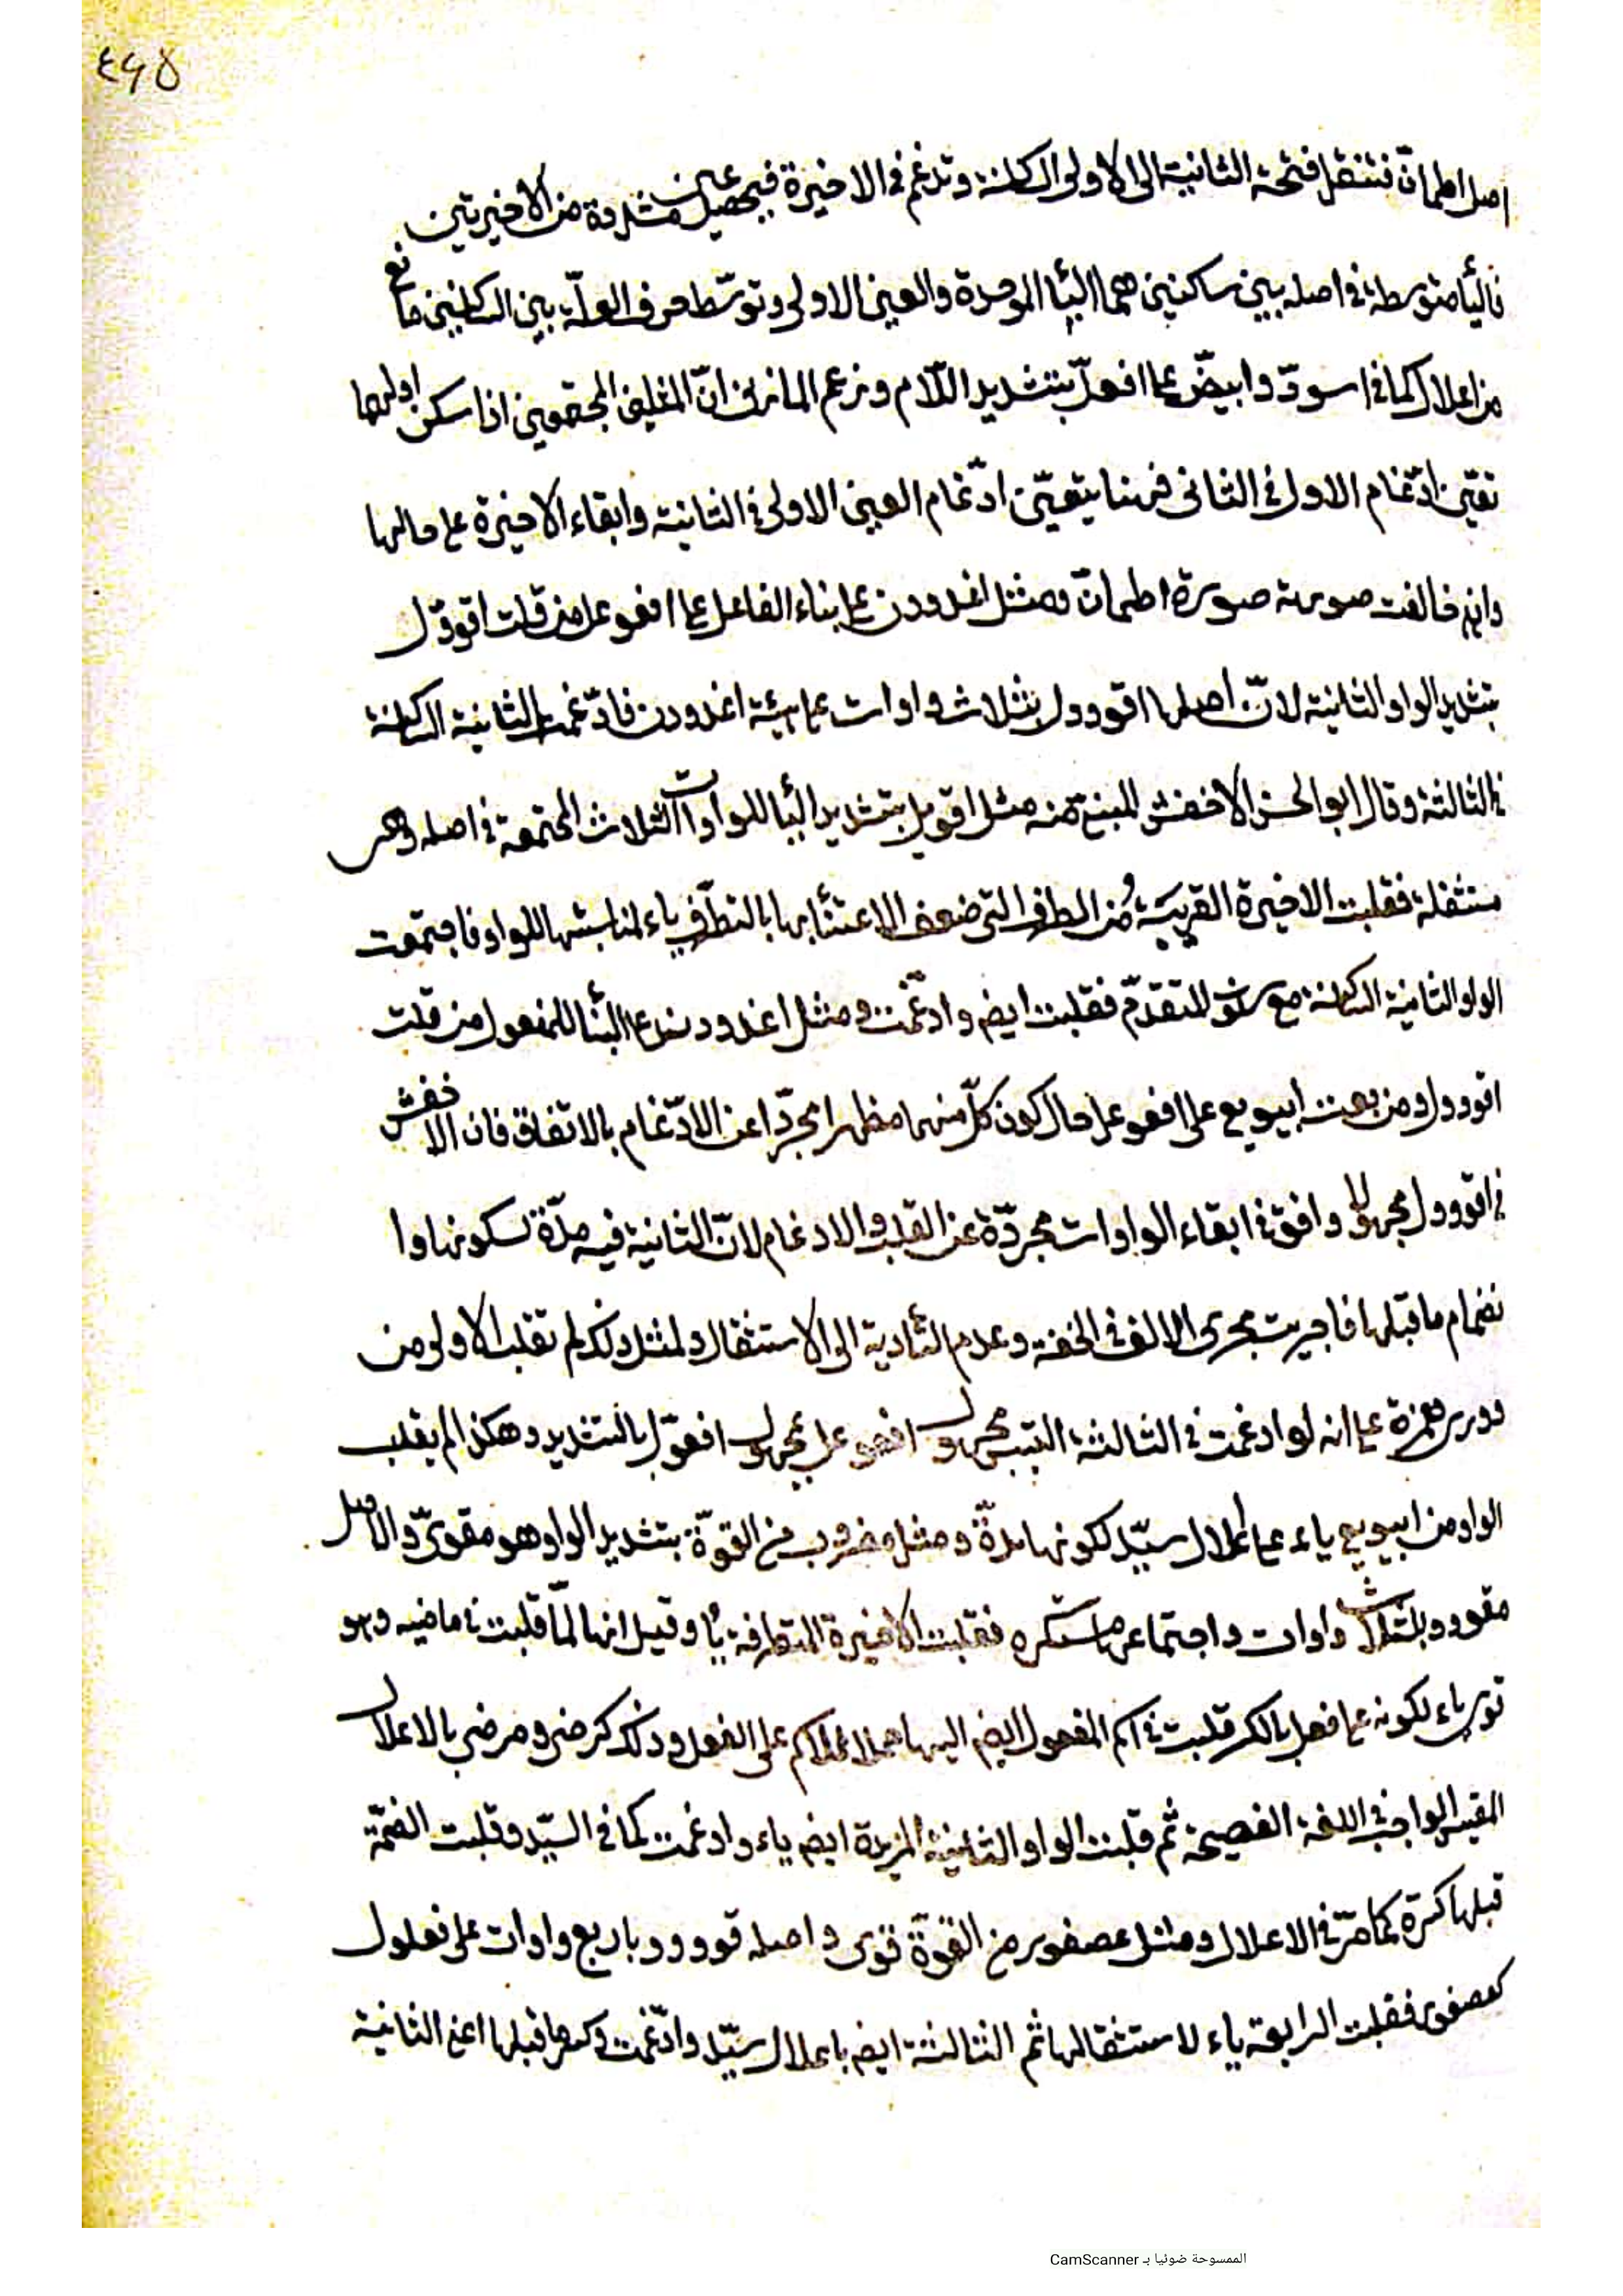 ٤٦٥
اصل اطمانّ فتنقل فتحة الثانية الى الاولى الساكنة وتدغم فى الاخيرة فيحصل عين مشددة من الاخيرتين
فاليا متوسطة فى اصله بين ساكنين هما البا الموحدة والعين الاولى وتوسّط حرف العلّة بين الساكنين مانع
من اعلال كما فى اسودّ وابيضّ عل‍ى افعلّ بتشديد اللّام وزعم المازنى انّ المثلين المجتمعين اذا سكن اولهما
تعيّن ادّغام الاول فى الثانى فهنا يتعيّن ادّغام العين الاولى فى الثانية وابقاء الاخيرة على حالها
وان خالفت صورته صورة اطمانّ ومثل اغدودن على بناء الفاعل على افعوعل من قلت اقووّل
بتشديد الواو الثانية لانّ اصلها اقووول بثلاث واوات على هيئة اغدودن فادّغمت الثانية الساكنة
فى الثالثة وقال ابو الحسن الاخفش المبنى منه مثل اقويل بتشديد اليا للواوات الثلاث المجتمعة فى اصله وهى
مستثقلة فقلبت الاخيرة القريبة من الطرف التى ضعف الاعتنا بها بالتطرّف ياء لمناسبتها للواو فاجتمعت
الواو الثانية الساكنة مع المتقدّم فقلبت ايضم وادغّمت ومثل اغدودن على البنا للمفعول من قلت
اقووول ومن بعت ابيويع على افعوعل حال كون كلّ منهما مظهرا مجرّدا عن الادّغام بالاتفاق فان الاخفش
فى اقووول مجهولا وافق فى ابقاء الواوات مجردّة عن القلب والادغام لانّ الثانية فيه مدّة لسكونها وا
نضمام ما قبلها فاجريت مجرى الالف فى الخفة وعدم التادية الى الاستثقال ولمثل ذلك لم تقلب الاولى من
وورى همزة على انه لو ادغمت فى الثالثة التبس مجهول افعوعل بمجهول افعوّل بالتشديد وهكذا لم يقلب
الواو من ابيويع ياء على اعلال سيّد لكونها مدّة ومثل مضروب من القوّة بتشديد الواو هو مقوىّ والاصل
مقووو بثلاث واوات واجتماعها مستكره فقلبت الاخيرة المتطرفة يا وقيل انها لمّا قلبت فى ماضيه وهو
قوى ياء لكونه على فعل بالكسر قلبت فى اسم المفعول ايضم اليها حملا للاسم على الفعل وذلك كرضى ومرضى بالاعلال
المقيس الواجب فى اللغة الفصيحة ثم قلبت الواو الثانية المزيدة ايضم ياء وادغمت كما فى السيّد وقلبت الضمّة
قبلها كسرة كما مرّ فى الاعلال ومثل عصفور من القوّة قوّى واصله قوووو باربع واوات على فعلول
كعصفور فقلبت الرابعة ياء لاستثقالها ثم الثالثة ايضم باعلال سيّد وادّغمت وكسر ما قبلها اعنى الثانية
الممسوحة ضوئيا بـ CamScanner